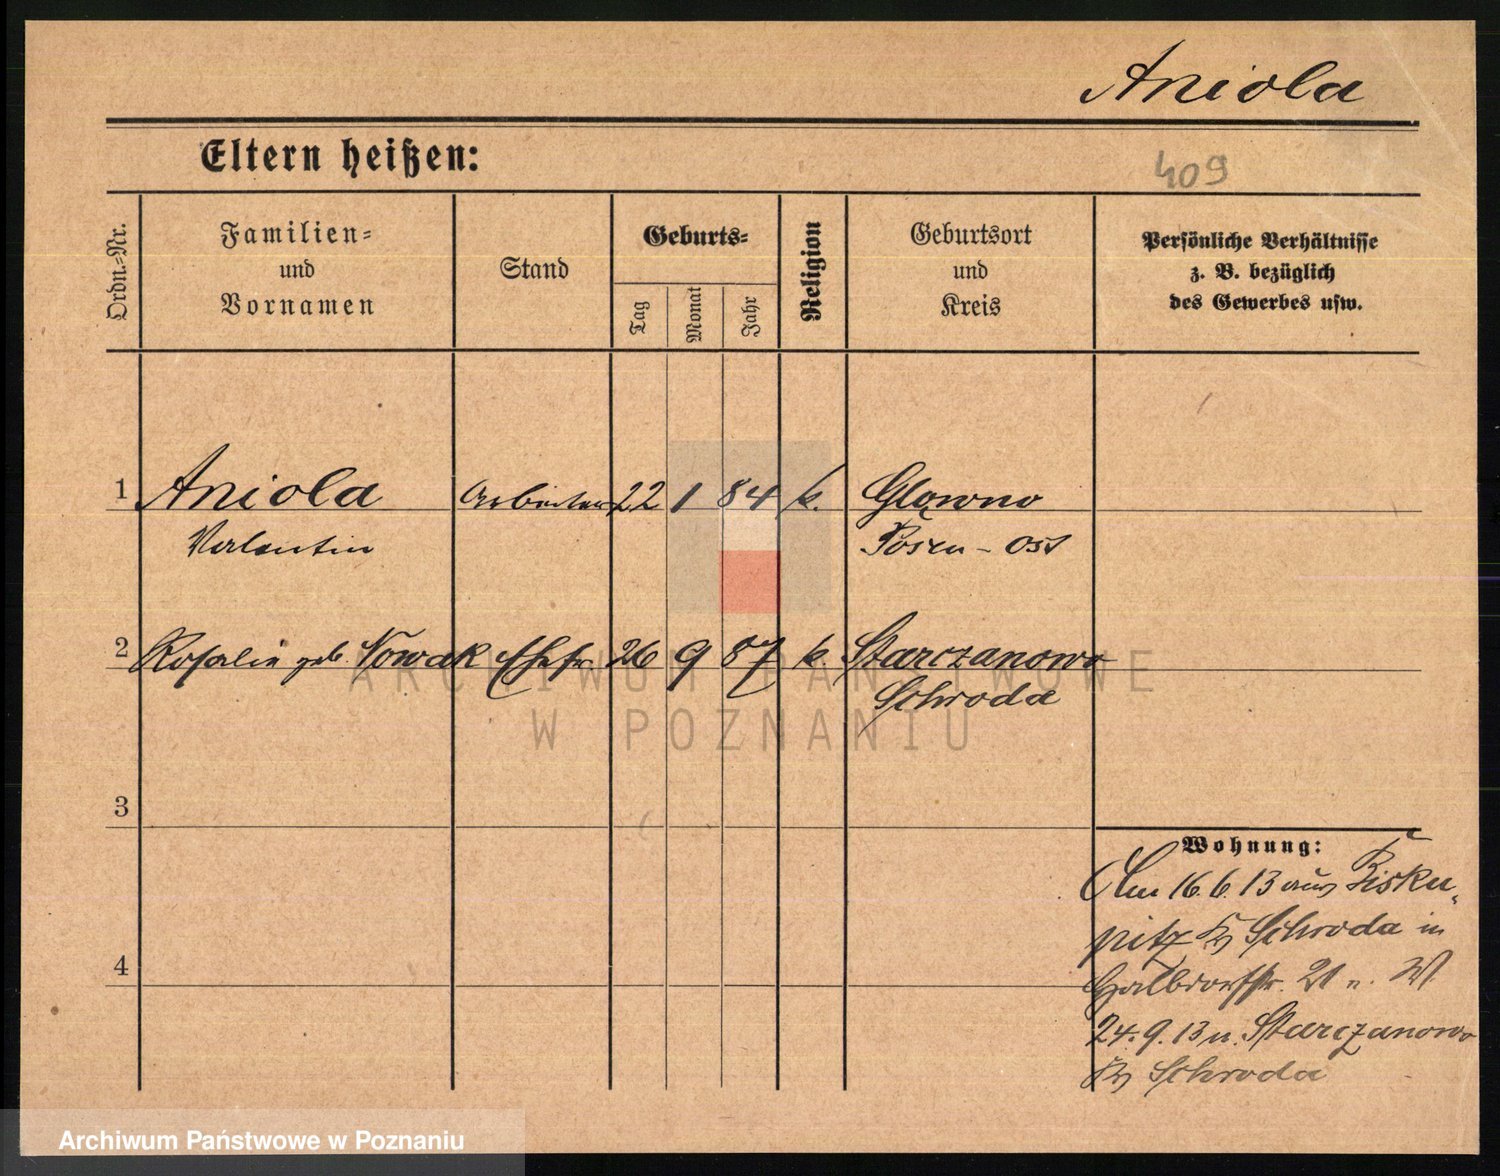 Aniola
Eltern heißen:
409
Ordn.-Nr.
Familien-
und
Vornamen
Stand
Geburts-
Tag
Monat
Jahr
Religion
Geburtsort
und
Kreis
Persönliche Verhältnisse
z. B. bezüglich
des Gewerbes usw.
1 Aniola Arbeiter 22 1 84 k. Głowno
Valentin Posen - Ost
2 Rosalie geb. Nowak Ehefr. 26 9 87 k. Starczanowo
Schroda
3
Wohnung:
Am 16.6.13 aus Bisku-
pitz Kr Schroda in
4
Halbdorfstr. 21 n. W.
24.9.13 n. Starczanowo
Kr Schroda
ARCHIWUM PAŃSTWOWE
W POZNANIU
Archiwum Państwowe w Poznaniu